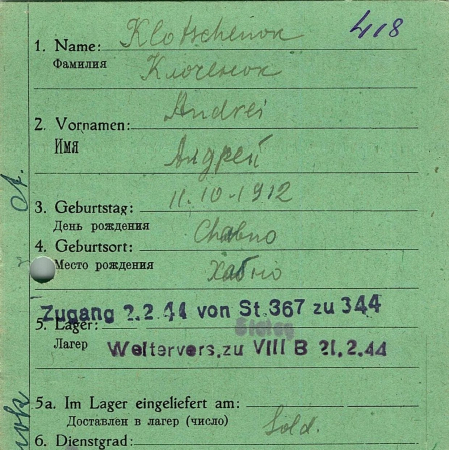 418
1. Name: Klotschenok
Фамилия Клоченок
Andrei
2. Vornamen:
Имя Андрей
11.10.1912
3. Geburtstag:
День рождения
4. Geburtsort: Chabno
Место рождения Хабно
Zugang 2.2.44 von St.367 zu 344
5. Lager: Stalag
Лагерь Weitervers.zu VIII B 21.2.44
5a. Im Lager eingeliefert am:
Доставлен в лагерь (число)
Sold.
6. Dienstgrad: